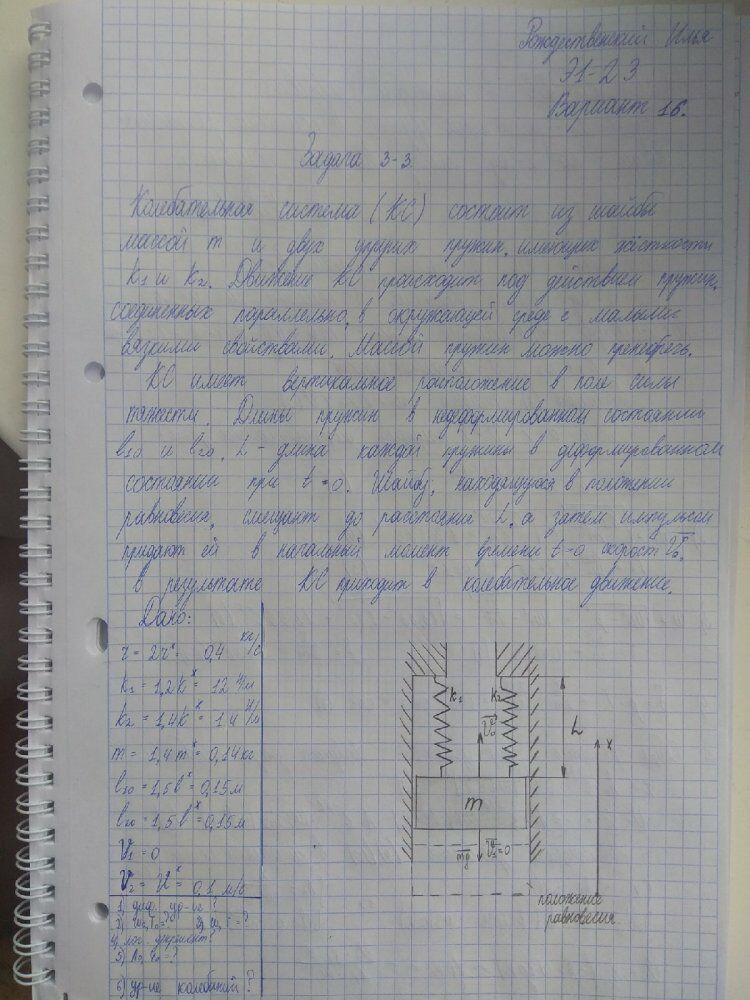 Рождественский Илья
Э1-23
Вариант 16.
Задача 3-3
Колебательная система (КС) состоит из шайбы
массой m и двух упругих пружин, имеющих жёсткости
k₁ и k₂. Движение КС происходит под действием пружин,
соединенных параллельно, в окружающей среде с малыми
вязкими свойствами. Массой пружин можно пренебречь.
КС имеет вертикальное расположение в поле силы
тяжести. Длины пружин в недеформированном состоянии
l₁₀ и l₂₀. L - длина каждой пружины в деформированном
состоянии при t=0. Шайбу, находящуюся в положении
равновесия, смещают до расстояния L, а затем импульсом
придают ей в начальный момент времени t=0 скорость V₀,
в результате КС приходит в колебательное движение.
Дано:
r = 2r* = 0,4 кг/с
k₁ = 1,2k* = 12 Н/м
k₂ = 1,4k* = 14 Н/м
m = 1,4m* = 0,14 кг
l₁₀ = 1,5l* = 0,15 м
l₂₀ = 1,5l* = 0,15 м
V₁ = 0
V₂ = U* = 0,1 м/с
1) диф. ур-ие ?
4) лог. декремент?
6) ур-ие колебаний ?
k₁
k₂
V₂
L
x
m
mg
V₁=0
положение
равновесия